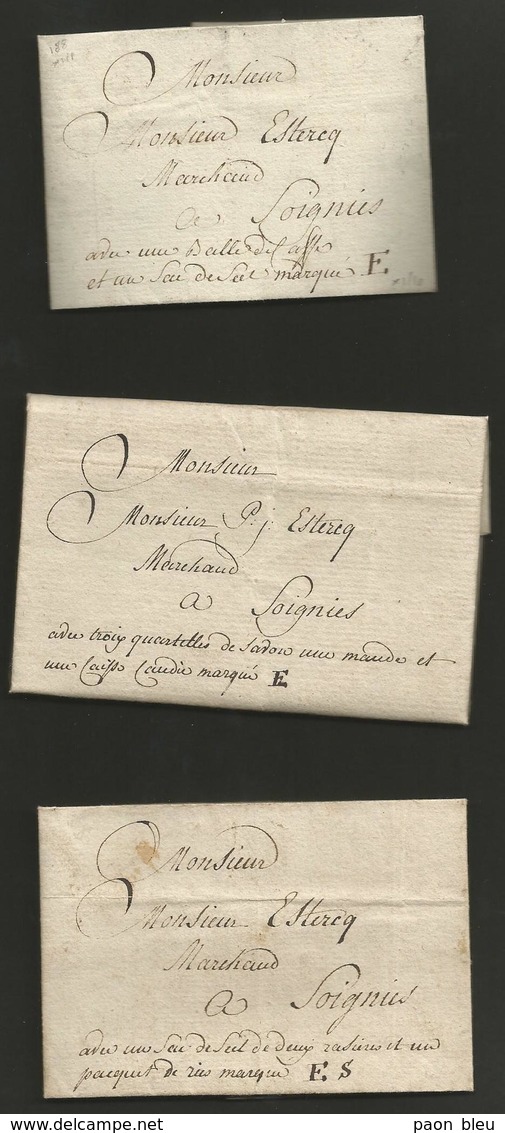 Monsieur
Monsieur Estercq
Marchand
a Soignies
avec une Balle de Caffe
et un Sac de Sel marqué E
Monsieur
Monsieur P: j: Estercq
Marchand
a Soignies
avec troix quartelles de Savon une mande et
une Caisse Candie marqué E
Monsieur
Monsieur Estercq
Marchand
a Soignies
avec un Sac de Sel de deux rasieres et un
pacquet de ris marqué E S
paon bleu